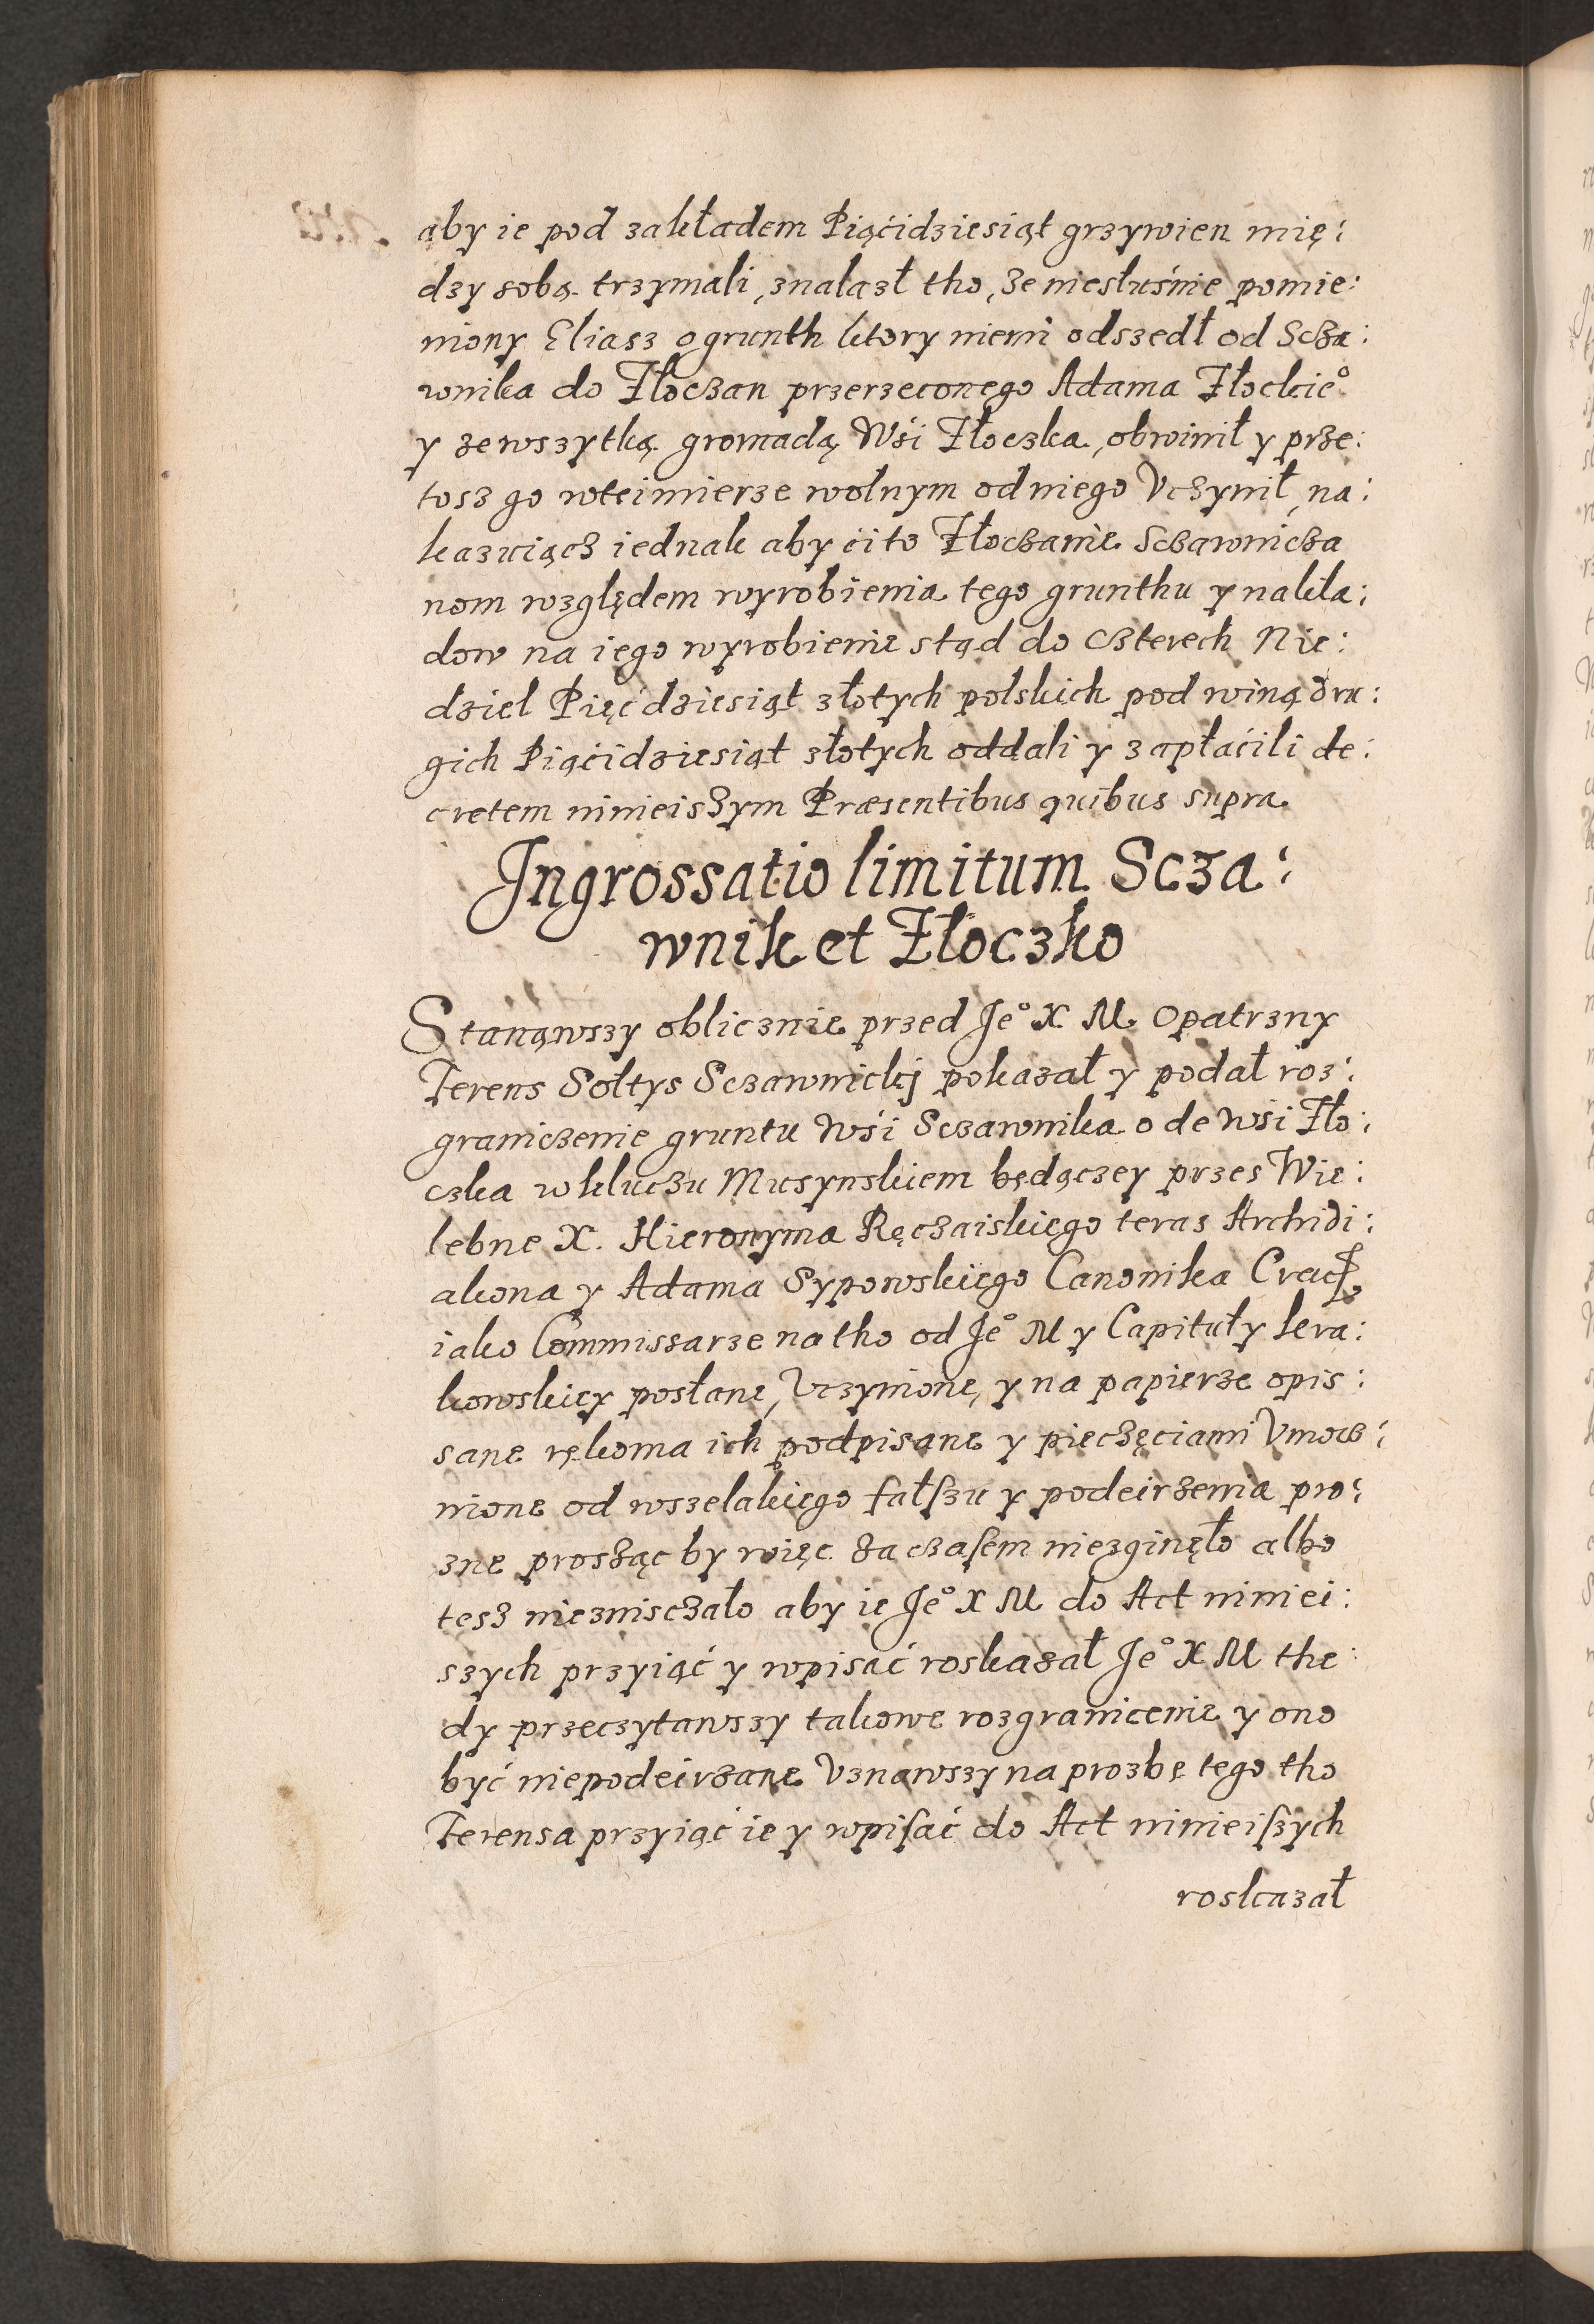 aby ie pod zakładem Piąćidziesiąt grzywien mię:
dzy sobą trzymali, znalazł tho, że niesłuśnie pomie:
niony Eliasz o grunth ktory niemi odszedł od Scza:
wnika do Złoczan przerzeconego Adama Złockie°
y ze wszytką gromadą Wśi Złoczka, obwinił y prze:
tosz go wteimierze wolnym od niego Vczynił, na:
kazuiącz iednak aby ći to Złoczanie Sczawnicza
nom względem wyrobienia tego grunthu y nakła:
dow na iego wyrobienie stąd do czterech Nie:
dziel Pięćdziesiąt złotych polskich pod winą dru:
gich Piąćidziesiąt złotych oddali y zapłaćili de:
cretem ninieiszym Præsentibus quibus supra
Ingrossatio limitum Scza:
wnik et Złoczko
Stanąwszy oblicznie przed Je° X M Opatrzny
Terens Sołtys Sczawnickj pokazał y podał roz:
graniczenie gruntu Wśi Sczawnika o de Wśi Zło:
czka w kluczu Musynskiem będączey przes Wie:
lebne X. Hieronyma Ręczaiskiego teras Archidi:
akona y Adama Sypowskiego Canonika Crac
iako Commissarze na tho od Je° M y Capituły kra:
kowskiey posłane, Vczynione, y na papierze opis:
sane rękoma ich podpisane y pieczęciami Vmoc:
nione od wszelakiego fałszu y podeirzenia pro:
zne prosząc by więc za czasem niezginęło albo
tesz nieznisczało aby ie Je° X M do Act niniei:
szych przyiąć y wpisać roskazał Je° X M the:
dy przeczytawszy takowe rozgranicenie y ono
być niepodeirzane Vznawszy na prozbę tego tho
Terensa przyiąć ie y wpisać do Act ninieiszych
roskazał